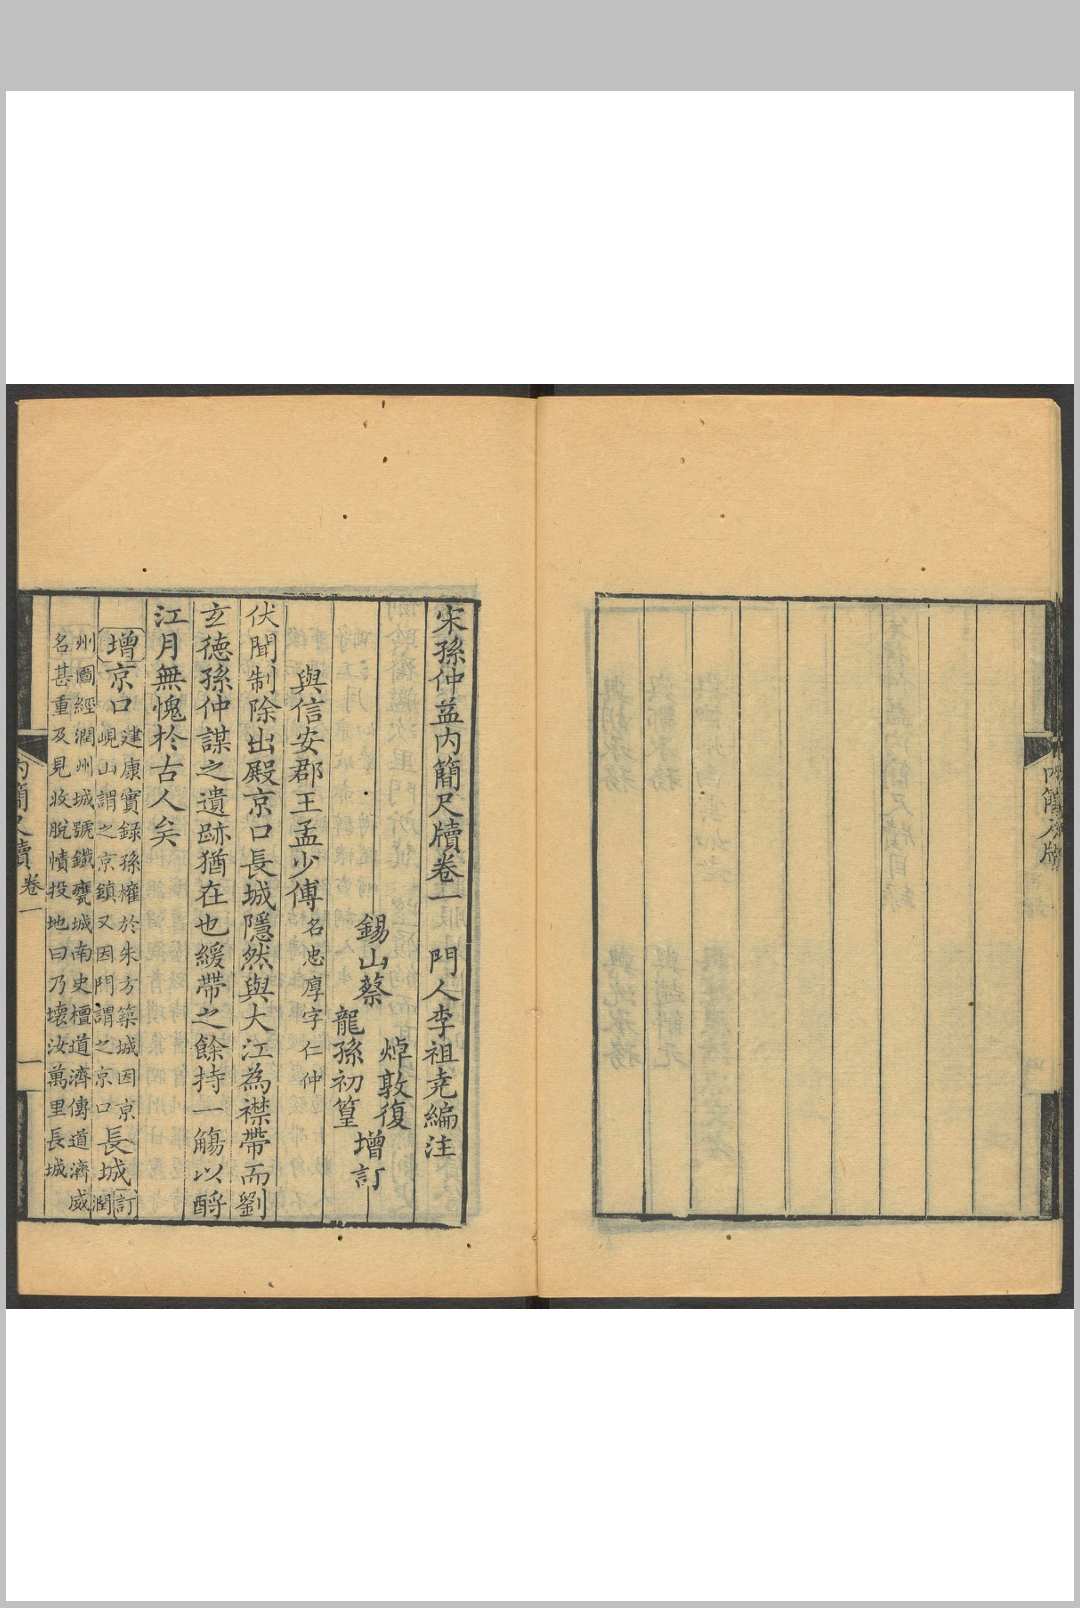 宋孫仲益内簡尺牘卷一　門人李祖堯編注
錫山蔡
焯敦復
龍孫初篁
增訂
與信安郡王孟少傅名忠厚字仁仲
伏聞制除出殿京口長城隱然與大江為襟帶而劉
玄德孫仲謀之遺跡猶在也緩帶之餘持一觴以酹
江月無愧於古人矣
增京口
建康實録孫權於朱方築城因京
峴山謂之京鎮又因門謂之京口
長城
訂
潤
州圖經潤州城號鐵甕城南史檀道濟傳道濟威
名甚重及見收脱幘投地曰乃壞汝萬里長城
内簡尺牘
卷一
一